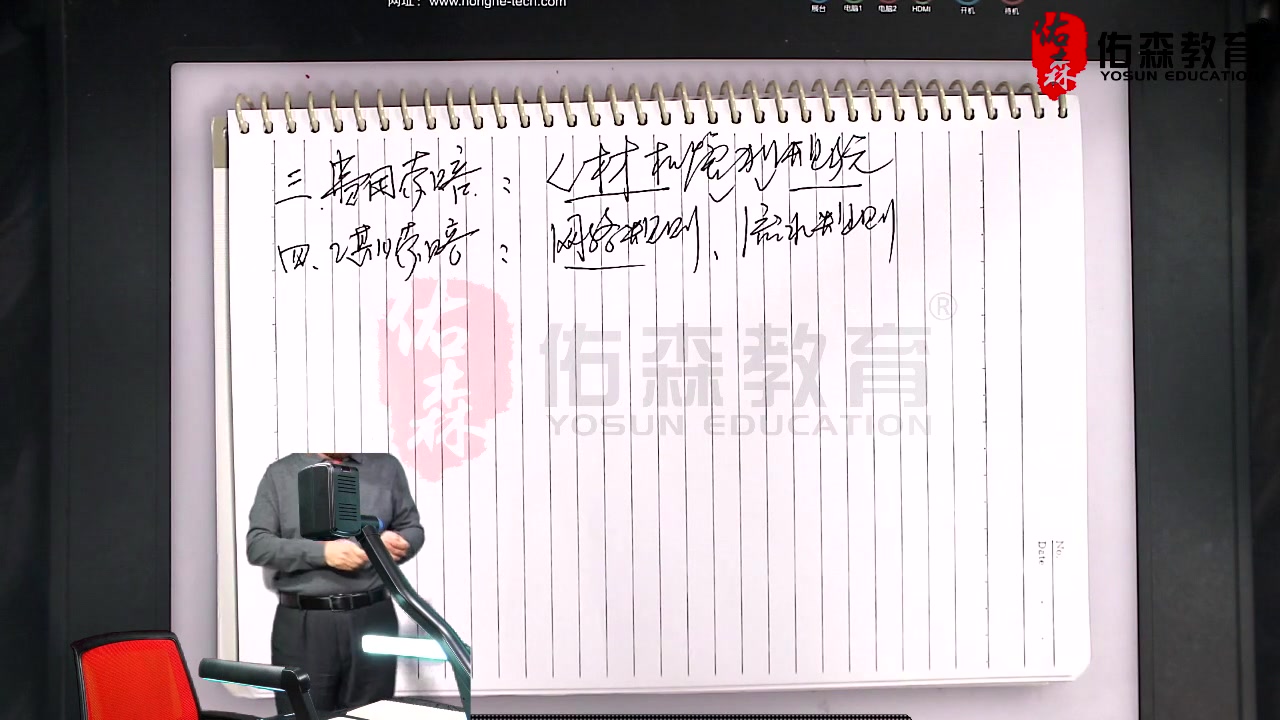 网址：www.honghe-tech.com
展台 电脑1 电脑2 HDMI 开机 待机
佑森 佑森教育
YOSUN EDUCATION
三、费用索赔：人材机管利规税
四、工期索赔：网络规则、流水规则
佑森 佑森教育®
YOSUN EDUCATION
No.
Date